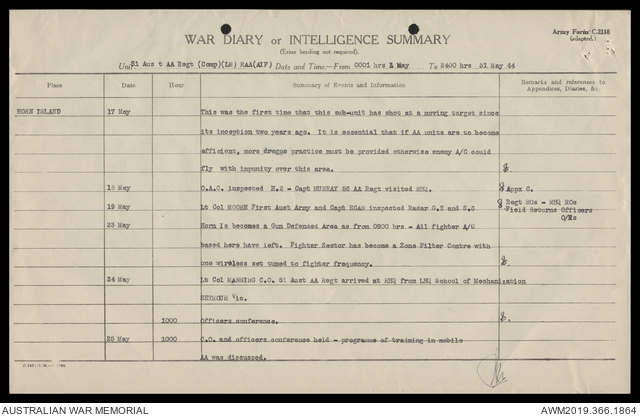 WAR DIARY or INTELLIGENCE SUMMARY
(Erase heading not required).
Army Form C.2118
(adapted.)
Unit 51 Aus t AA Regt (Comp)(LS) RAA(AIF) Date and Time.—From 0001 hrs 1 May To 2400 hrs 31 May 44
Place Date Hour Summary of Events and Information Remarks and references to
Appendices, Diaries, &c.
HORN ISLAND 17 May This was the first time that this sub-unit has shot at a moving target since
its inception two years ago. It is essential if AA units are to become
efficient, more drogue practice must be provided otherwise enemy A/C could
fly with impunity over this area.
18 May C.A.C. inspected H.2 - Capt MURRAY 56 AA Regt visited RHQ. Appx C.
19 May Lt Col MOORE First Aust Army and Capt EGAN inspected Radar G.2 and S.6 Regt ROs - RHQ ROs
Field Returns Officers
O/Rs
23 May Horn Is becomes a Gun Defended Area as from 0800 hrs - All fighter A/C
based here have left. Fighter Sector has become a Zone Filter Centre with
one wireless set tuned to fighter frequency.
24 May Lt Col MANNING C.O. 51 Aust AA Regt arrived at RHQ from LHQ School of Mechanization
SEYMOUR Vic.
1000 Officers conference.
25 May 1000 C.O. and officers conference held - programme of training in mobile
AA was discussed.
AUSTRALIAN WAR MEMORIAL
AWM2019.366.1864